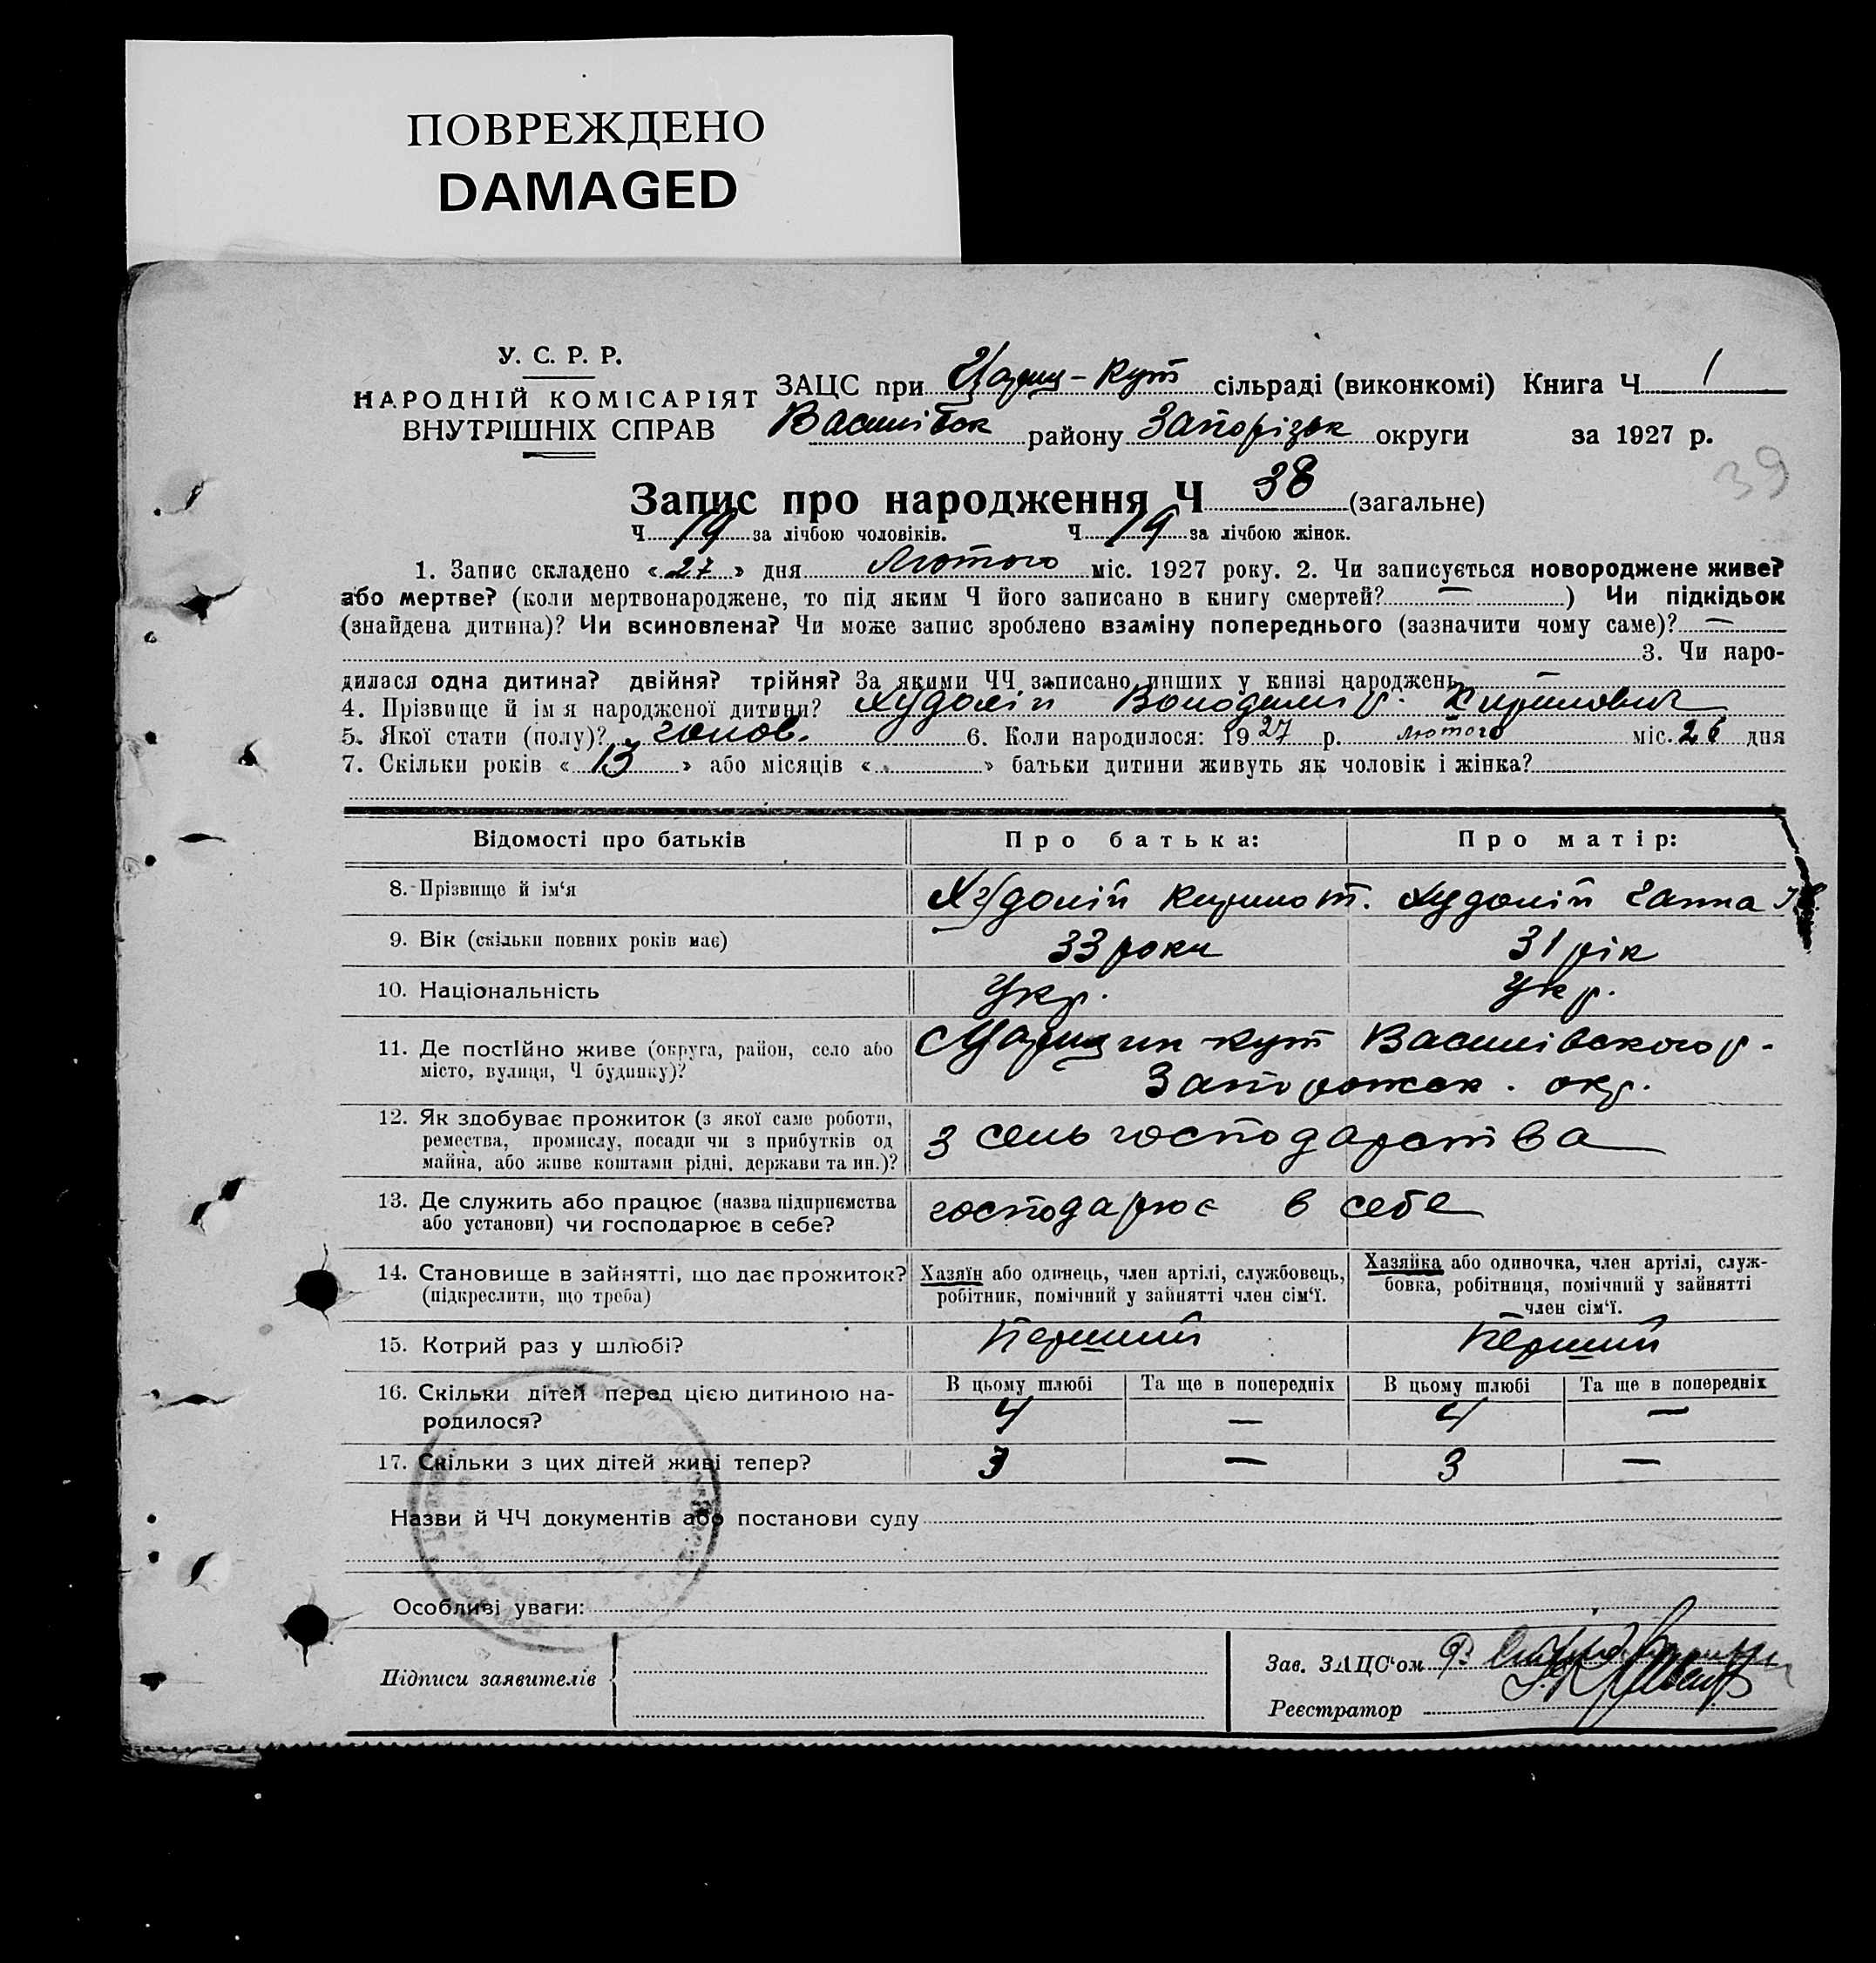 ПОВРЕЖДЕНО
DAMAGED
У. С. Р. Р.
НАРОДНІЙ КОМІСАРІЯТ
ВНУТРІШНІХ СПРАВ
ЗАЦС при Цариц-Кут сільраді (виконкомі) Книга Ч 1
Василівськ району Запорізьк округи за 1927 р.
39
Запис про народження Ч 38 (загальне)
Ч 19 за лічбою чоловіків. Ч 19 за лічбою жінок.
1. Запис складено «27» дня Лютого міс. 1927 року. 2. Чи записується новороджене живе?
або мертве? (коли мертвонароджене, то під яким Ч його записано в книгу смертей? — ) Чи підкідьок
(знайдена дитина)? Чи всиновлена? Чи може запис зроблено взаміну попереднього (зазначити чому саме)? —
3. Чи наро-
дилася одна дитина? двійня? трійня? За якими ЧЧ записано инших у книзі народжень —
4. Прізвище й ім'я народженої дитини? Худолій Володимир. Кирилович
5. Якої стати (полу)? чолов. 6. Коли народилося: 1927 р. лютого міс. 26 дня
7. Скільки років «13» або місяців « » батьки дитини живуть як чоловік і жінка?
Відомості про батьків Про батька: Про матір:
8. Прізвище й ім'я Худолій Кирило т. Худолій Ганна
9. Вік (скільки повних років має) 33 роки 31 рік
10. Національність Укр. Укр.
11. Де постійно живе (округа, район, село або Царицин кут Василівського р.
місто, вулиця, Ч будинку)? Запорожск. окр.
12. Як здобуває прожиток (з якої саме роботи,
ремества, промислу, посади чи з прибутків од з сель господарства
майна, або живе коштами рідні, держави та ин.)?
13. Де служить або працює (назва підприємства господарює в себе
або установи) чи господарює в себе?
14. Становище в зайнятті, що дає прожиток? Хазяїн або одинець, член артілі, службовець, Хазяйка або одиночка, член артілі, служ-
(підкреслити, що треба) робітник, помічний у зайнятті член сім'ї. бовка, робітниця, помічний у зайнятті
член сім'ї.
15. Котрий раз у шлюбі? Перший Перший
16. Скільки дітей перед цією дитиною на- В цьому шлюбі Та ще в попередніх В цьому шлюбі Та ще в попередніх
родилося? 4 — 4 —
17. Скільки з цих дітей живі тепер? 3 — 3 —
Назви й ЧЧ документів або постанови суду
Особливі уваги:
Підписи заявителів
Зав. ЗАЦС'ом
Реєстратор